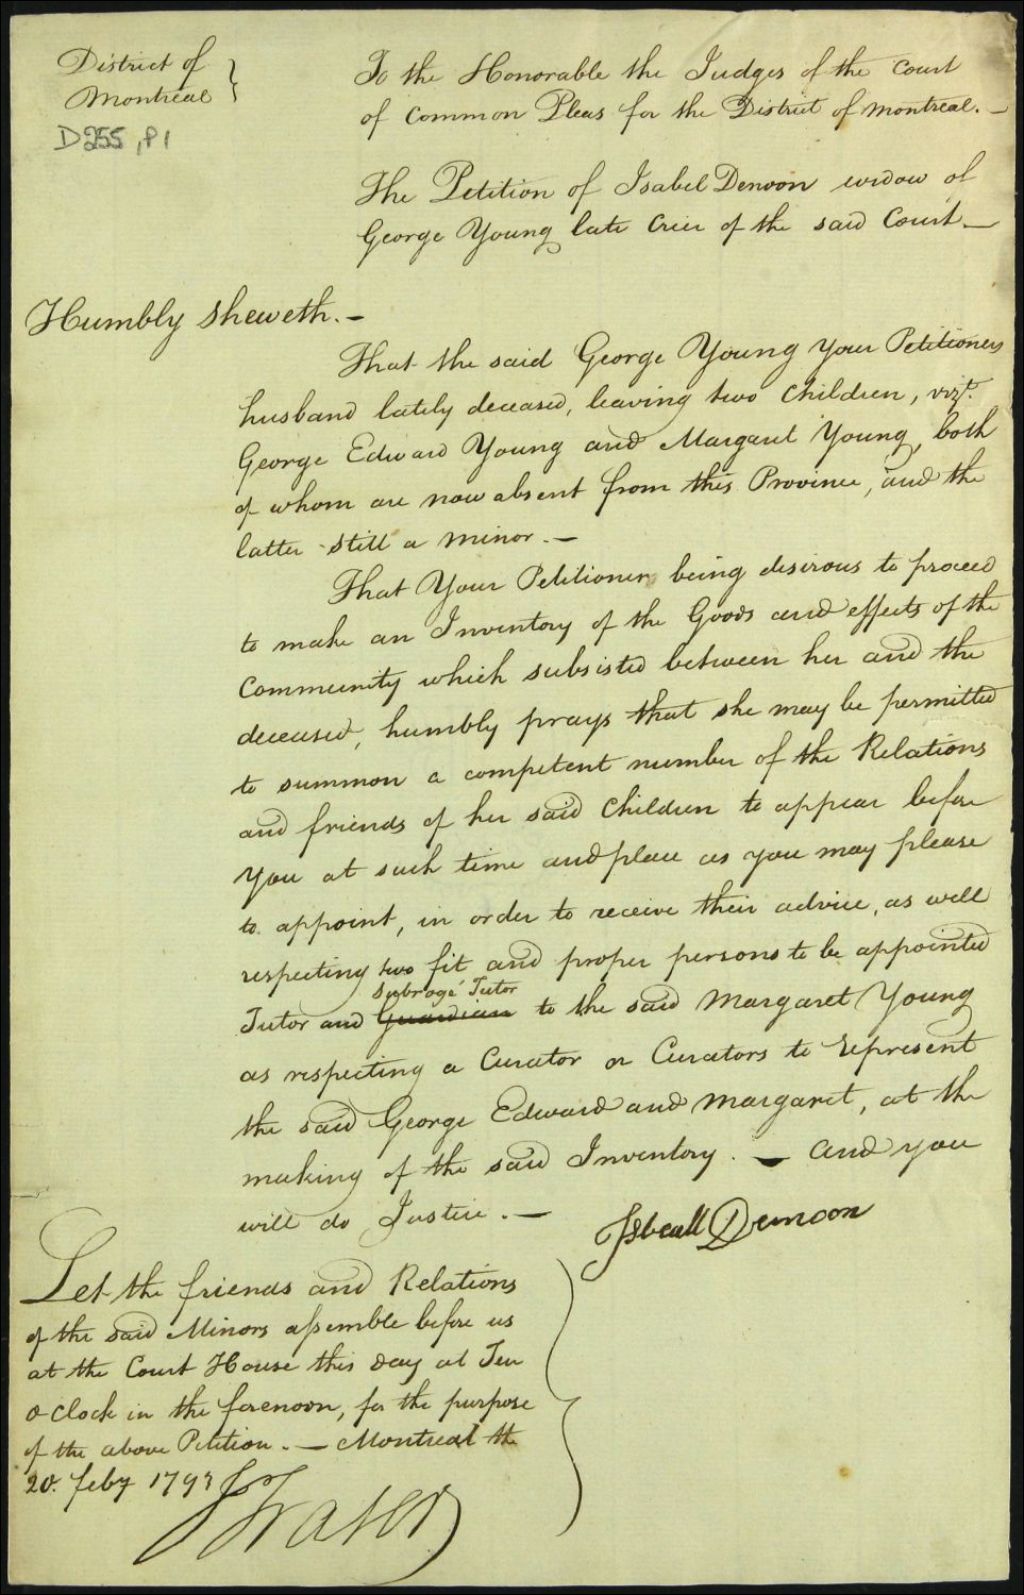 District of
Montreal
D255, P1
To the Honorable the Judges of the Court
of Common Pleas for the District of Montreal. —
The Petition of Isabel Denoon widow of
George Young late Crier of the said Court —
Humbly sheweth. —
That the said George Young Your Petitioners
husband lately deceased, leaving two Children, vizt.
George Edward Young and Margaret Young, both
of whom are now absent from this Province, and the
latter still a minor. —
That Your Petitioner being desirous to proceed
to make an Inventory of the Goods and effects of the
Community which subsisted between her and the
deceased, humbly prays that she may be permitted
to summon a competent number of the Relations
and friends of her said Children to appear before
You at such time and place as you may please
to appoint, in order to receive their advice, as well
respecting two fit and proper persons to be appointed
Subrogé Tutor
Tutor and Guardian to the said Margaret Young
as respecting a Curator or Curators to represent
the said George Edward and Margaret, at the
making of the said Inventory. — And you
will do Justice. —
Isbeall Denoon
Let the friends and Relations
of the said Minors assemble before us
at the Court House this day at Ten
o Clock in the forenoon, for the purpose
of the above Petition. — Montreal the
20. feby 1793
Fraser